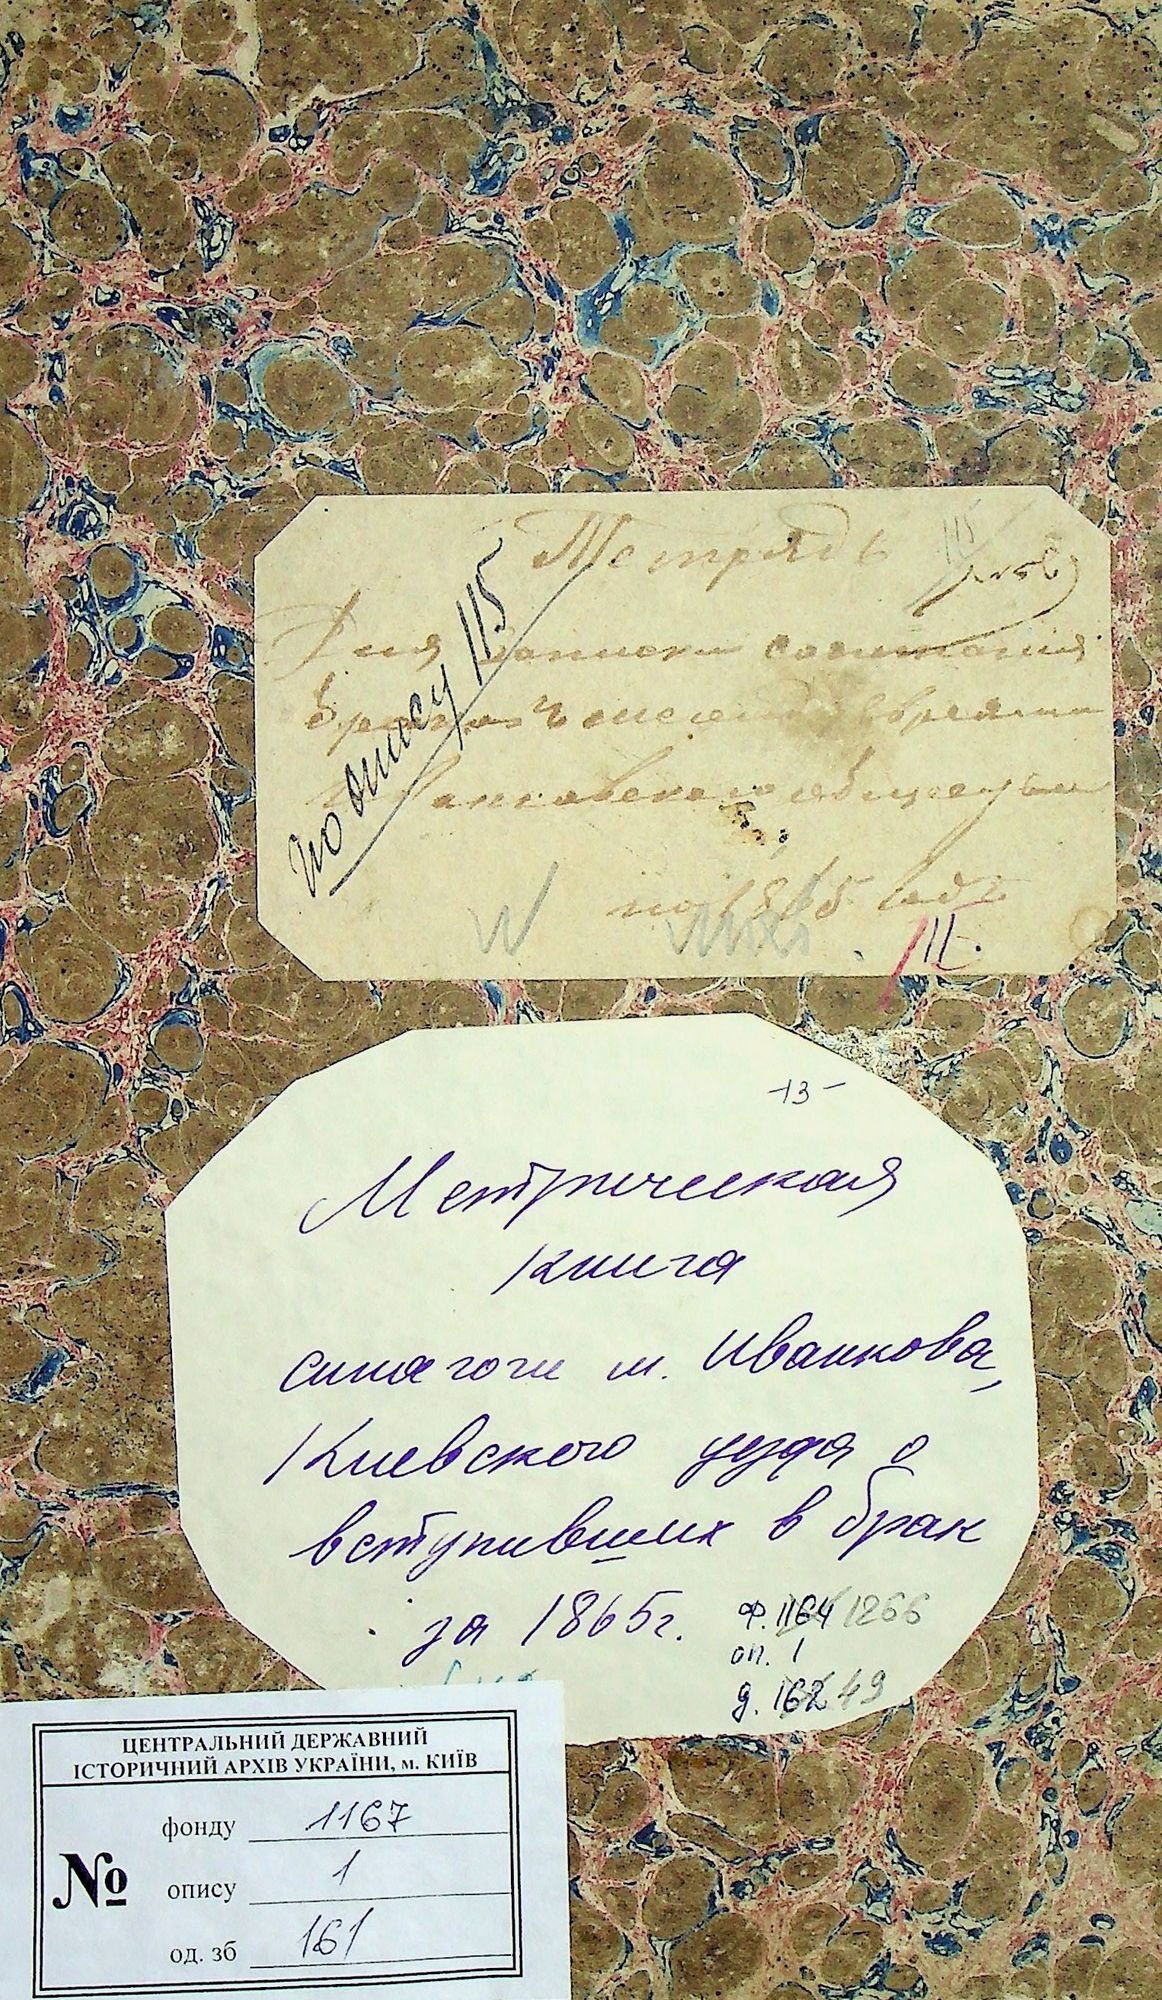 Тетрадь
115
по опису 115
Для записки сочетания
браковъ между евреями
Иванковского общества
на 1865 годъ
III.
-13-
Метрическая
книга
синагоги м. Иванкова,
Киевского уезда о
вступивших в брак
за 1865г.
ф. 1164 1266
оп. 1
д. 162 49
ЦЕНТРАЛЬНИЙ ДЕРЖАВНИЙ
ІСТОРИЧНИЙ АРХІВ УКРАЇНИ, м. КИЇВ
№
фонду 1167
опису 1
од. зб 161